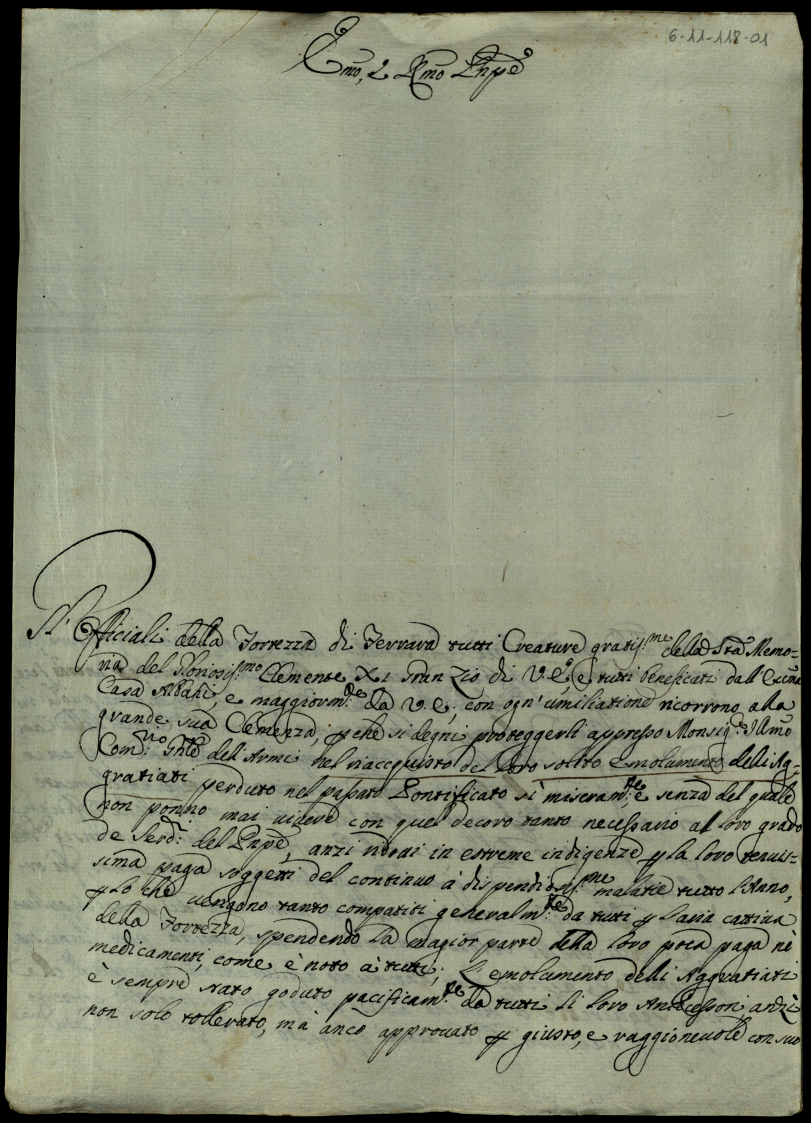 6-11-118-01
Emo, e Rmo Pnpe
Gl' Officiali della Fortezza di Ferrara tutti Creature gratis.me della Sta Memo-
ria del Gloriosis.mo Clemente XI Gran Zio di V.E. e tutti beneficati dall' Eccma
Casa Albani, e maggiorm.te da V.E., con ogn' umiliatione ricorrono alla
grande sua Clemenza, pche si degni proteggerli appresso Monsig.e Illmo
Com.rio Gnle dell'Armi nel riacquisto del loro solito Emolumento delli Ag-
gratiati perduto nel passato Pontificato si miseram.te e senza del quale
non ponno mai vivere con quel decoro tanto necessario al loro grado
de Serd.i del Pnpe, anzi ridotti in estreme indigenze p la loro tenuis-
sima paga soggetti del continuo à dispendiosis.me malatie tutto l'Anno,
p lo che vengono tanto compatiti generalm.te da tutti p l'aria cattiva
della Fortezza, spendendo la magior parte della loro poca paga nè
medicamenti, come è noto à tutti; L'emolumento delli Aggratiati
è sempre stato goduto pacificam.te da tutti li loro Antecessori, anzi
non solo tollerato, mà anco approvato p giusto, e raggionevole con suo